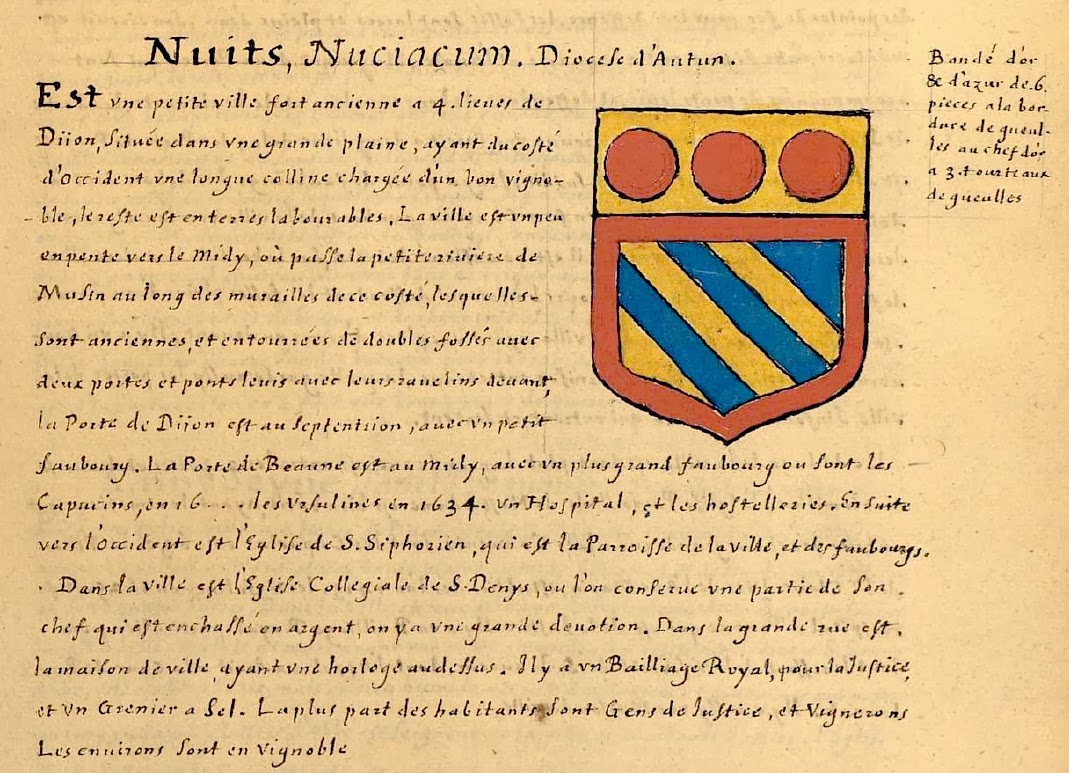 Nuits, Nuciacum. Diocese d'Autun.
Est vne petite ville fort ancienne a 4. lieues de
Dijon, Située dans vne grande plaine, ayant du costé
d'Occident vne longue colline chargée d'un bon vigno-
ble, le reste est en terres labourables. La ville est vn peu
en pente vers le Midy, où passe la petite riviere de
Musin au long des murailles de ce costé, lesquelles
sont anciennes, et entourrées de doubles fossés avec
deux portes et ponts levis avec leurs ravelins devant,
la Porte de Dijon est au Septentrion, avec vn petit
faubourg. La Porte de Beaune est au midy, avec vn plus grand faubourg ou sont les
Capucins, en 16... les Vrsulines en 1634. vn Hospital, et les hostelleries. Ensuite
vers l'Occident est l'Eglise de S. Siphorien, qui est la Parroisse de la ville, et des faubourgs.
Dans la ville est l'Eglise Collegiale de S. Denys, ou l'on conserue vne partie de son
chef qui est enchassé en argent, on y a vne grande deuotion. Dans la grande rue est
la maison de ville, ayant vne horloge au dessus. Il y a vn Bailliage Royal, pour la Justice,
et vn Grenier a Sel. La plus part des habitants sont Gens de Justice, et Vignerons
Les enuirons sont en vignoble
Bandé d'or
& d'azur de 6.
pieces a la bor-
dure de gueul-
les au chef d'or
a 3. tourteaux
de gueulles